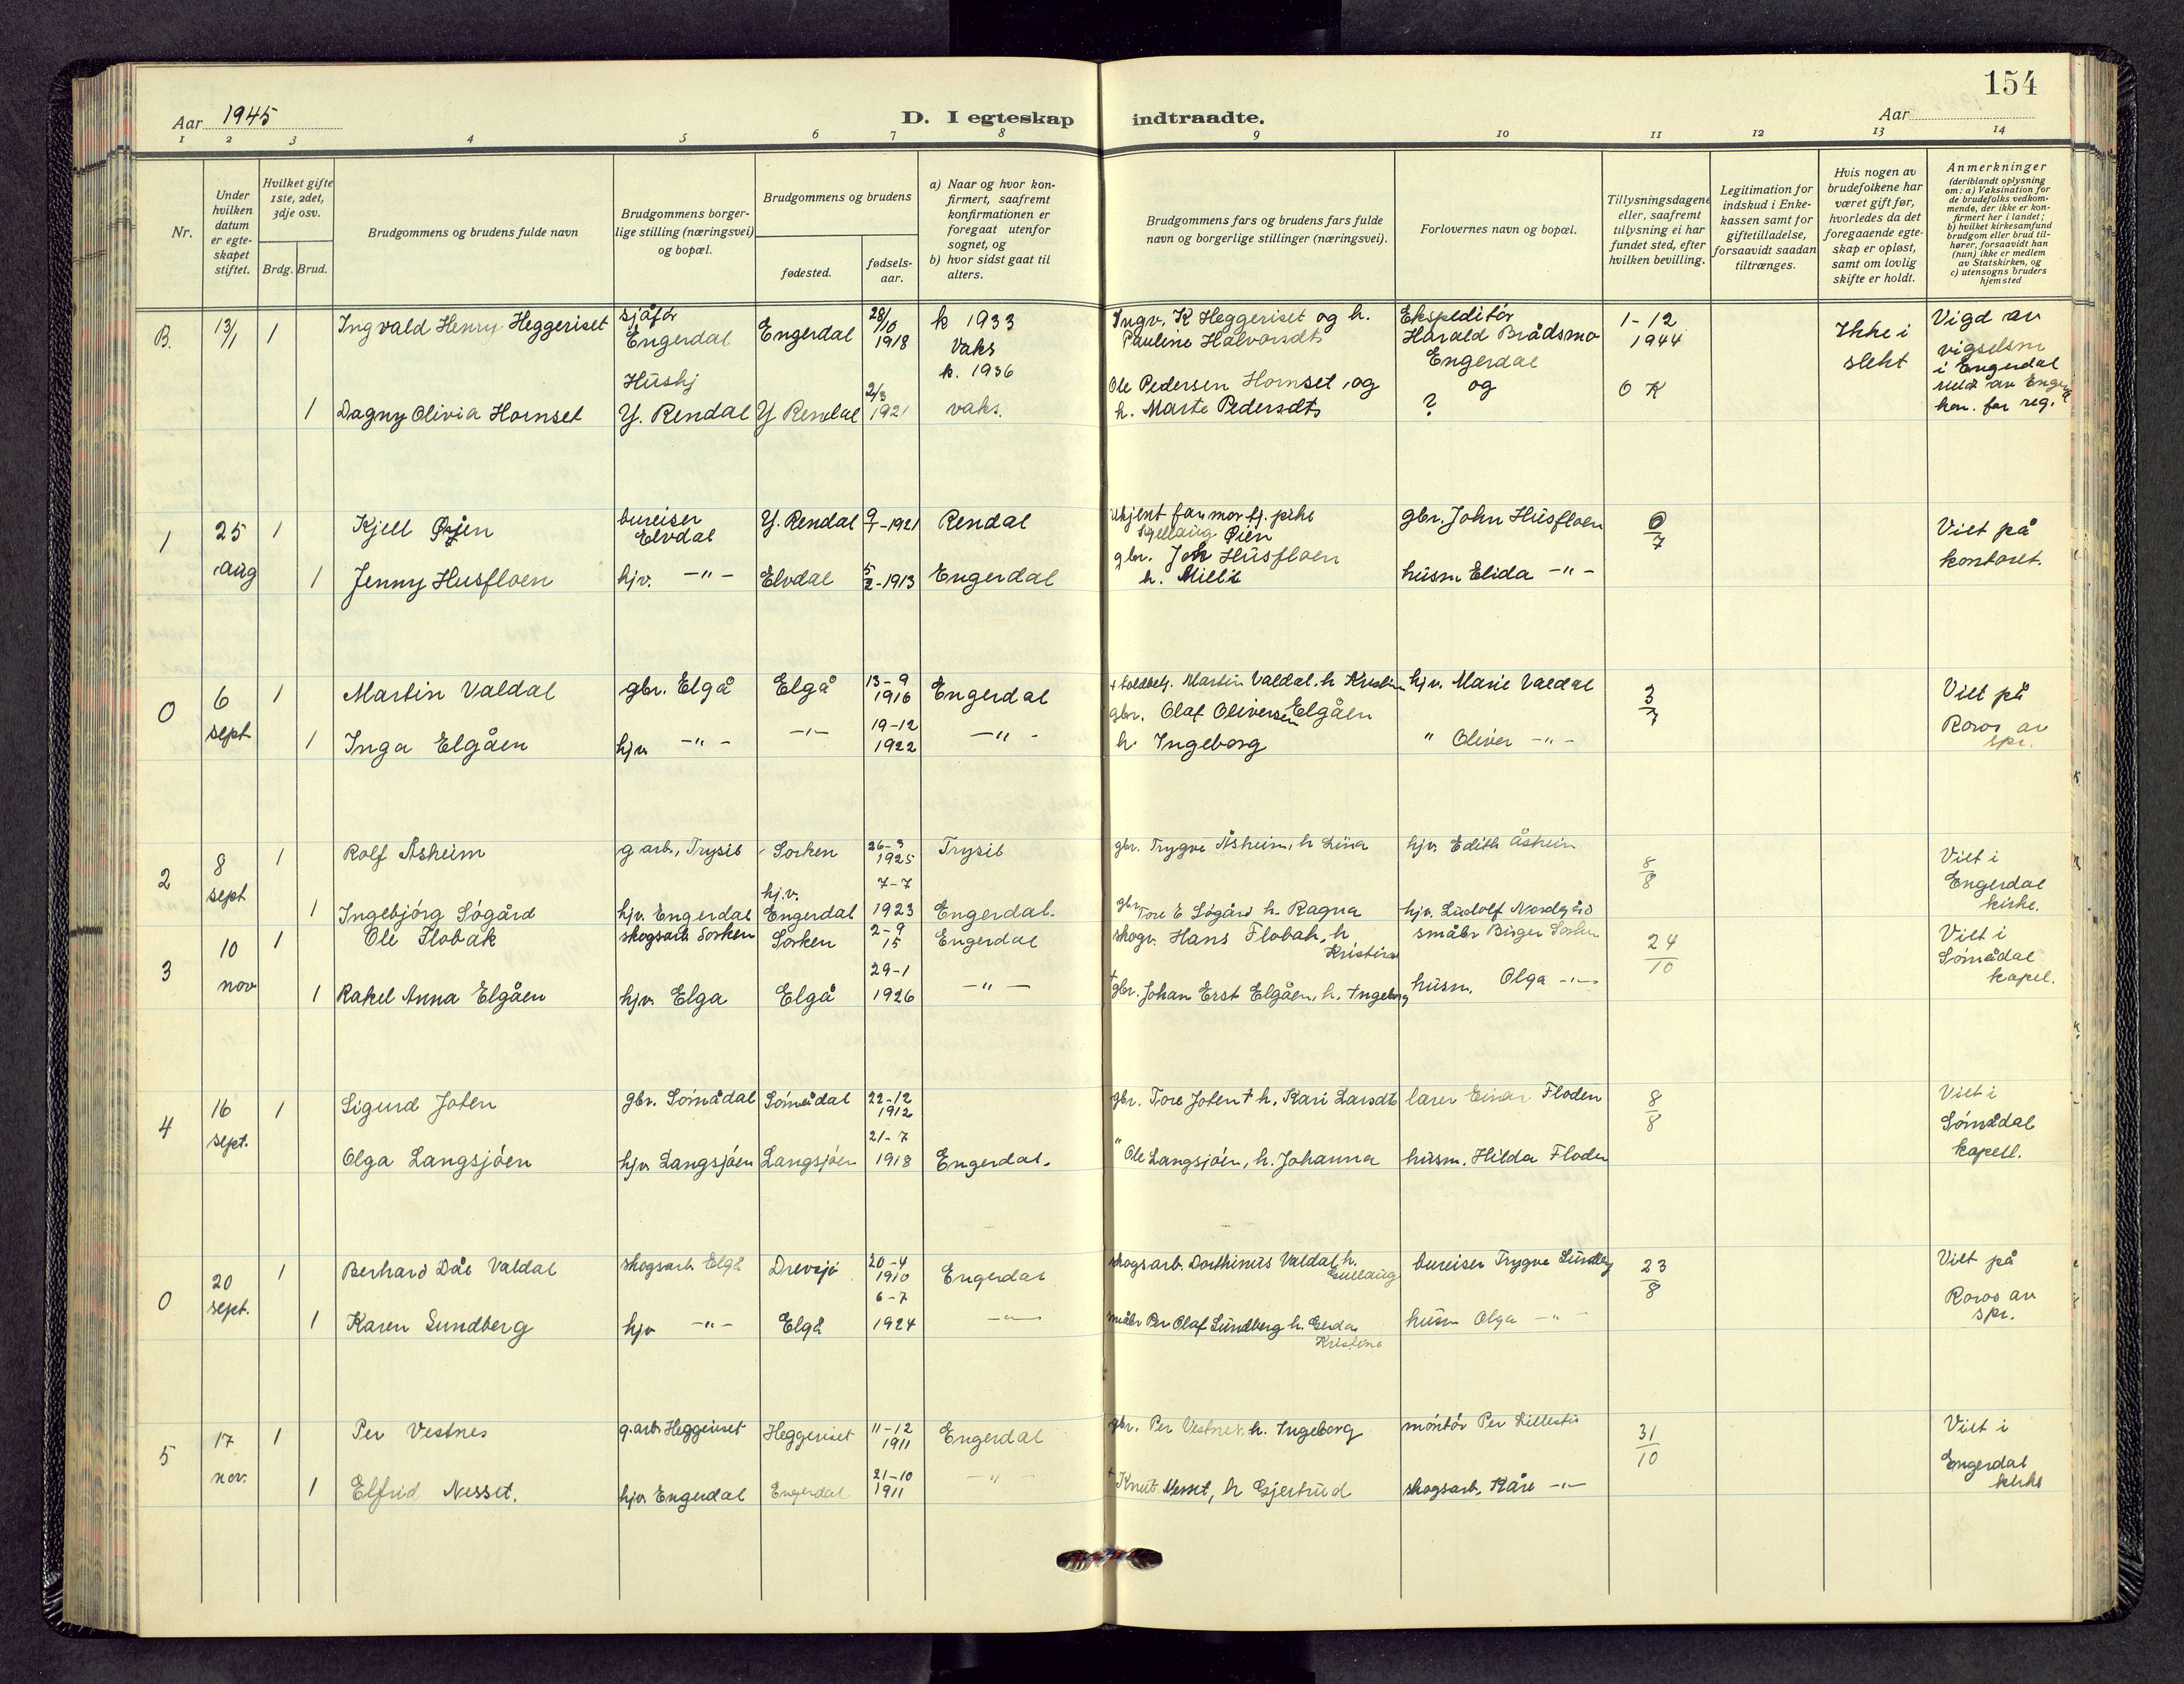 154
Aar 1945
D. I egteskap indtraadte.
Aar
1 2 3 4 5 6 7 8 9 10 11 12 13 14
Nr.
Under hvilken datum er egte-skapet stiftet.
Hvilket gifte 1ste, 2det, 3dje osv.
Brdg. Brud.
Brudgommens og brudens fulde navn
Brudgommens borger-lige stilling (næringsvei) og bopæl.
Brudgommens og brudens
fødested.
fødsels-aar.
a) Naar og hvor kon-firmert, saafremt konfirmationen er foregaat utenfor sognet, og
b) hvor sidst gaat til alters.
Brudgommens fars og brudens fars fulde navn og borgerlige stillinger (næringsvei).
Forlovernes navn og bopæl.
Tillysningsdagene eller, saafremt tillysning ei har fundet sted, efter hvilken bevilling.
Legitimation for indskud i Enke-kassen samt for giftetilladelse, forsaavidt saadan tiltrænges.
Hvis nogen av brudefolkene har været gift før, hvorledes da det foregaaende egte-skap er opløst, samt om lovlig skifte er holdt.
Anmerkninger
(deriblandt oplysning om: a) Vaksination for de brudefolks vedkom-mende, der ikke er kon-firmert her i landet;
b) hvilket kirkesamfund brudgom eller brud til-hører, forsaavidt han (hun) ikke er medlem av Statskirken, og
c) utensogns bruders hjemsted
B. 13/1 1 Ingvald Henry Heggeriset sjåfør Engerdal Engerdal 28/10 1918 k 1933 Vaks Ingv. K Heggeriset og h. Pauline Halvorsdt Ekspeditör Harald Brådsmo Engerdal 1-12 1944 Ikke i slekt Vigd av vigselsm i Engerdal
1 Dagny Olivia Hornset Hushj Y. Rendal Y Rendal 2/3 1921 k. 1936 vaks. Ole Pedersen Hornset, og h. Marte Pedersdt og ? O K
1 25 aug 1 Kjell Øien bureiser Elvdal Y. Rendal 9/7-1921 Rendal Ukjent far mor Øien gbr. John Husfloen 0/7 Viet på kontoret.
1 Jenny Husfloen hjv. -"- Elvdal 5/2-1913 Engerdal gbr. Joh Husfloen h. Milli husm Elida -"-
0 6 sept 1 Martin Valdal gbr. Elgå Elgå 13-9 1916 Engerdal Martin Valdal. h Kristin hjv. Marie Valdal 3/7 Viet på Roros av spr.
1 Inga Elgåen hjv -"- -"- 19-12 1922 -"- gbr. Olaf Oliversen Elgåen h. Ingeborg " Oliver -"-
2 8 sept 1 Rolf Åsheim g arb., Trysil Sorken 26-3 1925 Trysil gbr. Trygve Åsheim, h Lina hjv. Edith Åsheim 8/8 Viet i Engerdal kirke.
1 Ingebjörg Sögård hjv. Engerdal hj.v. Engerdal 7-7 1923 Engerdal. gbr Tore E Sögård h. Ragna hjv. Ludolf Nordgård
3 10 nov 1 Ole Flobak skogsarb Sorken Sorken 2-9 15 Engerdal skogr. Hans Flobak, h Kristina småbr Birger Sorken 24/10 Viet i Sömådal kapel.
1 Rakel Anna Elgåen hjv. Elga Elgå 29-1 1926 -"- † gbr. Johan Erst Elgåen, h. Ingeborg husm. Olga -"-
4 16 sept. 1 Sigurd Joten gbr. Sömådal Sömådal 22-12 1912 gbr. Tore Joten † h. Kari Larsdt lærer Einar Floden 8/8 Viet i Sömådal kapell.
Olga Langsjöen hjv. Langsjöen Langsjöen 21-7 1918 Engerdal. " Ole Langsjöen, h. Johanna husm. Hilda Floden
0 20 sept. 1 Berhard Dåe Valdal skogsarb. Elgå Drevsjö 20-4 1910 Engerdal skogsarb. Dorthinus Valdal h. Gullaug bureiser Trygve Sundberg 23/8 Viet på Roros av spr.
1 Karen Sundberg hjv -"- Elgå 6-7 1924 -"- småbr Per Olaf Sundberg h. Gerda Kristine husm Olga -"-
5 17 nov. 1 Per Vestnes g.arb. Heggeriset Heggeriset 11-12 1911 Engerdal gbr. Per Vestnes, h. Ingeborg montör Per Lillestu 31/10 Viet i Engerdal kirke
1 Elfrid Nesset. hjv. Engerdal Engerdal 21-10 1911 -"- † Knut Nesset, h Gjertrud skogsarb. Kåre -"-